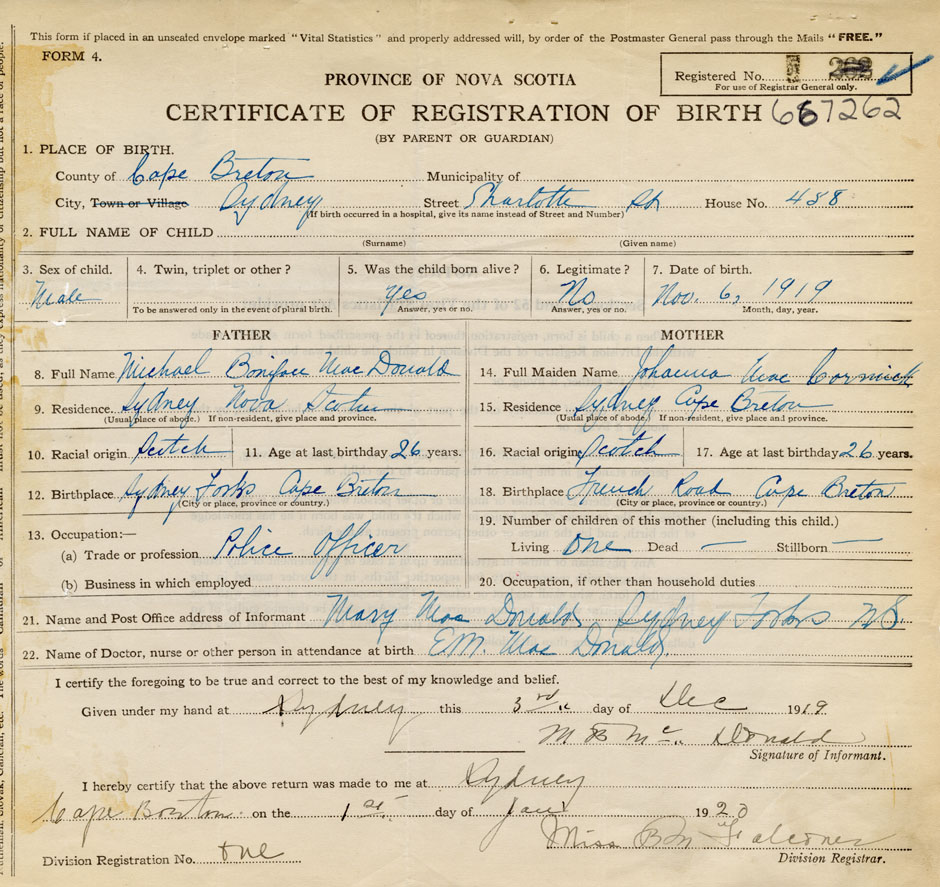 This form if placed in an unsealed envelope marked "Vital Statistics" and properly addressed will, by order of the Postmaster General pass through the Mails "FREE."
FORM 4.
PROVINCE OF NOVA SCOTIA
Registered No.
For use of Registrar General only.
CERTIFICATE OF REGISTRATION OF BIRTH 667262
(BY PARENT OR GUARDIAN)
1. PLACE OF BIRTH.
County of Cape Breton Municipality of
City, Town or Village Sydney Street Charlotte St House No. 438
(If birth occurred in a hospital, give its name instead of Street and Number)
2. FULL NAME OF CHILD
(Surname) (Given name)
3. Sex of child. 4. Twin, triplet or other? 5. Was the child born alive? 6. Legitimate? 7. Date of birth.
Male Yes No Nov. 6, 1919
To be answered only in the event of plural birth. Answer, yes or no. Answer, yes or no. Month, day, year.
FATHER MOTHER
8. Full Name Michael Boniface Mac Donald 14. Full Maiden Name Johanna Mac Cormick
9. Residence. Sydney Nova Scotia 15. Residence Sydney Cape Breton
(Usual place of abode.) If non-resident, give place and province. (Usual place of abode.) If non-resident, give place and province.
10. Racial origin Scotch 11. Age at last birthday 26 years. 16. Racial origin Scotch 17. Age at last birthday 26 years.
12. Birthplace Sydney Forks Cape Breton 18. Birthplace French Road Cape Breton
(City or place, province or country.) (City or place, province or country.)
13. Occupation:— 19. Number of children of this mother (including this child.)
(a) Trade or profession Police Officer Living One Dead — Stillborn —
(b) Business in which employed 20. Occupation, if other than household duties
21. Name and Post Office address of Informant Mary Mac Donald, Sydney Forks NS.
22. Name of Doctor, nurse or other person in attendance at birth E.M. Mac Donald.
I certify the foregoing to be true and correct to the best of my knowledge and belief.
Given under my hand at Sydney this 3rd day of Dec 1919
M B Mc Donald
Signature of Informant.
I hereby certify that the above return was made to me at Sydney
Cape Breton on the 1st day of Jan 1920
Miss B M Falconer
Division Registration No. One Division Registrar.